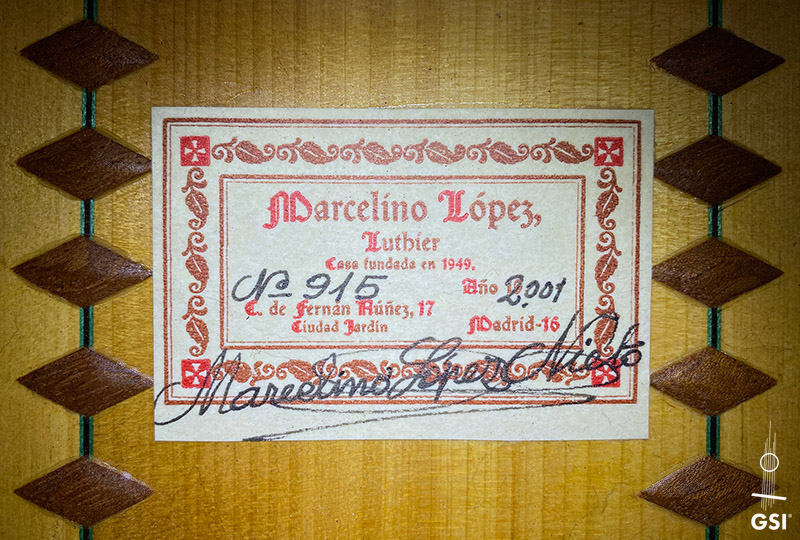 Marcelino López,
Luthier
Casa fundada en 1949.
Nº 915 Año 2.001
C. de Fernán Núñez, 17
Ciudad Jardín Madrid-16
Marcelino López Nieto
GSI